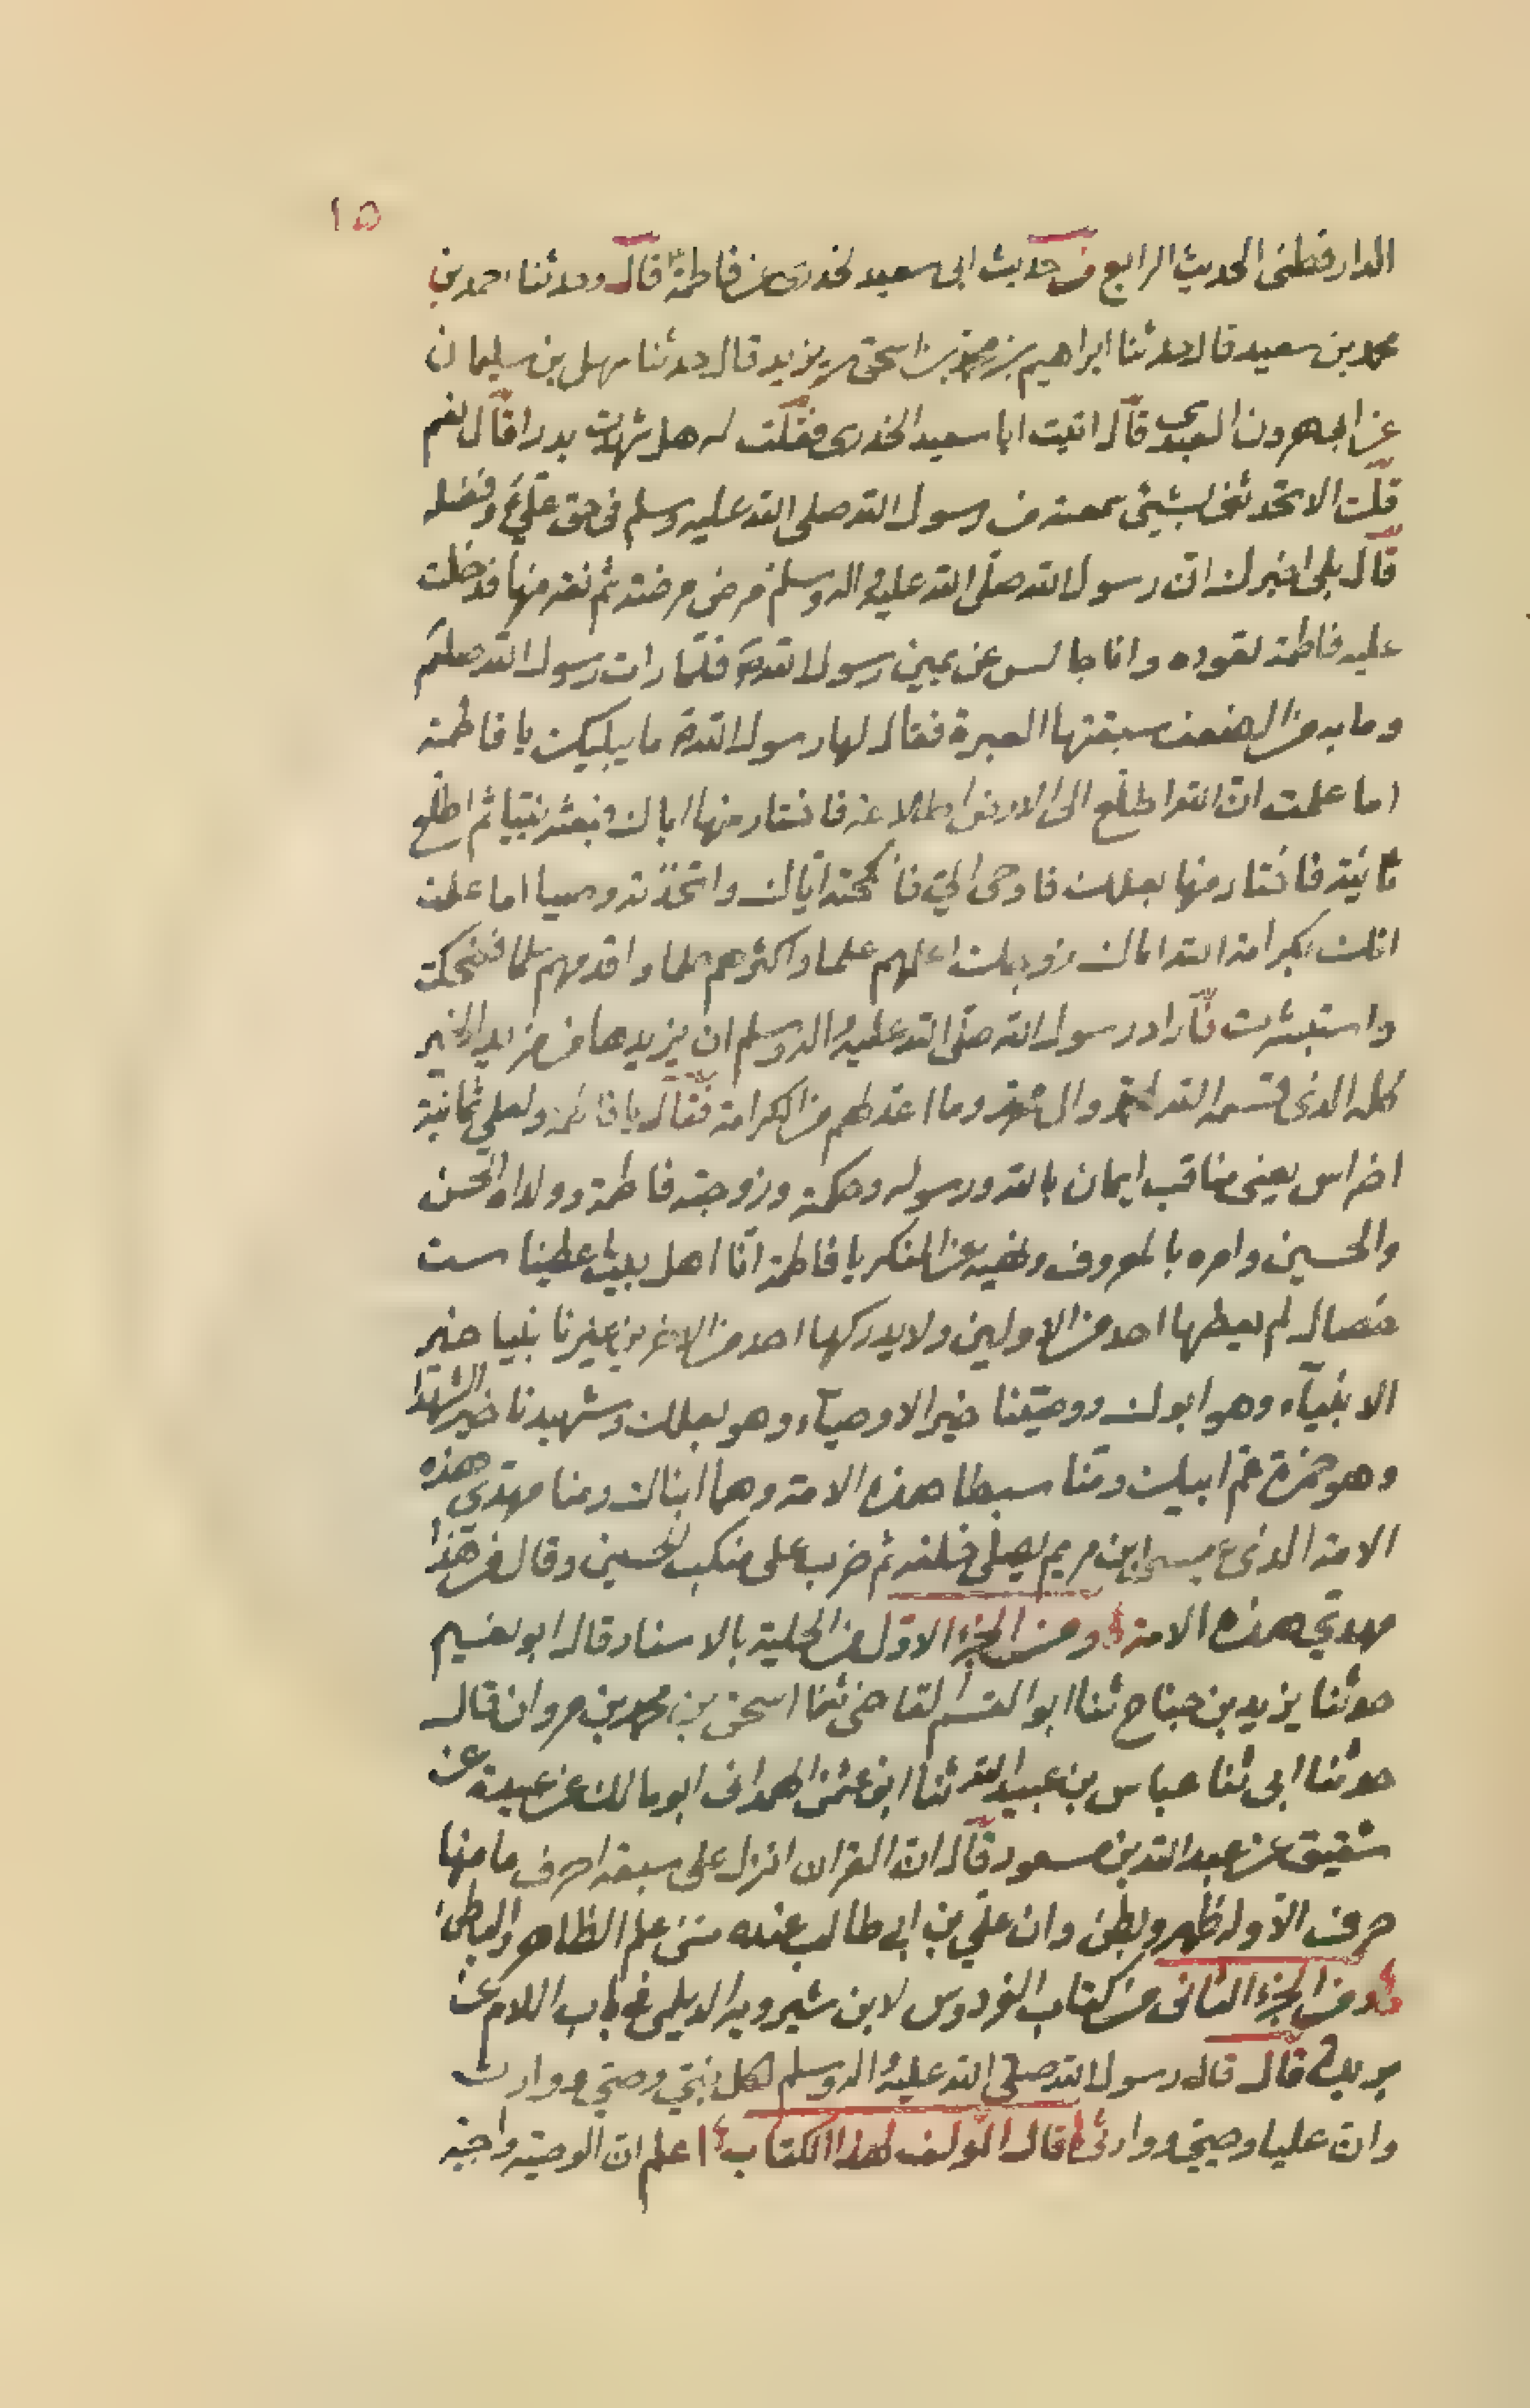 ١٥
الدارقطنى الحديث الرابع من حديث ابى سعيد لخدرى عن فاطمة قال وحدثنا احمد بن
محمد بن سعيد قال حدثنا ابراهيم بن محمد بن اسحق بن يزيد قال حدثنا سهل بن سليمان
عن ابى هرون العبدى قال اتيت ابا سعيد الخدرى فقلت له هل شهدت بدرا فقال نعم
قلت الا تحدثنى بشيئ سمعته من رسول الله صلى الله عليه وسلم فى حق على ع وفضله
قال بلى اخبرك ان رسول الله صلى الله عليه واله وسلم مرض مرضة ثم نقه منها فدخلت
عليه فاطمة تعوده وانا جالس عن يمين رسول الله ص فلما رات رسول الله صلعم
وما به من الضعف سبقتها العبرة فقال لها رسول الله ص ما يبكيك يا فاطمة
اما علمت ان الله اطلع الى الارض اطلاعة فاختار منها اباك فبعثه نبيا ثم اطلع
ثانية فاختار منها بعلك فاوحى الي فانكحته اياك واتخذته وصيا اما علمت
انك بكرامة الله اياك زوجك اعلمهم علما واكثرهم حلما واقدمهم سلما فضحكت
واستبشرت فاراد رسول الله صلى الله عليه واله وسلم ان يزيدها من مزيد الخير
كله الذى قسمه الله لمحمد وال محمد وما اعد لهم من الكرامة فقال يا فاطمة ولعلي ثمانية
اضراس يعنى مناقب ايمان بالله ورسوله وحكمة وزوجته فاطمة وولداه الحسن
والحسين وامره بالمعروف ونهيه عن المنكر يا فاطمة انا اهل بيت اعطينا ست
خصال لم يعطها احد من الاولين ولا يدركها احد من الاخرين غيرنا نبينا خير
الانبيآء وهو ابوك ووصينا خير الاوصيآء وهو بعلك وشهيدنا خير الشهدا
وهو حمزة عم ابيك ومنا سبطا هذه الامة وهما ابناك ومنا مهدي هذه
الامة الذى عيسى ابن مريم يصلى خلفه ثم ضرب على منكب الحسين وقال من هذا
مهدي هذه الامة ومن الجزء الاول من الحلية بالاسناد قال ابو نعيم
حدثنا يزيد بن جناح ثنا ابو القسم القاضى ثنا اسحق بن محمد بن مروان قال
حدثنا ابى ثنا عباس بن عبيد الله ثنا ابن عثمن الهمدانى ابو مالك عن عبيدة عن
شقيق عن عبد الله بن مسعود قال ان القران انزل على سبعة احرف ما منها
حرف الا وله ظهر وبطن وان علي بن ابى طالب عنده منه علم الظاهر والباطن
ومن الجزء الثانى من كتاب الفردوس لابن شيرويه الديلمى فى باب اللام عن
بريدة قال قال رسول الله صلى الله عليه واله وسلم لكل نبي وصي ووارث
وان عليا وصيي ووارثى قال المولف لهذا الكتاب اعلم ان الوصية واجبة